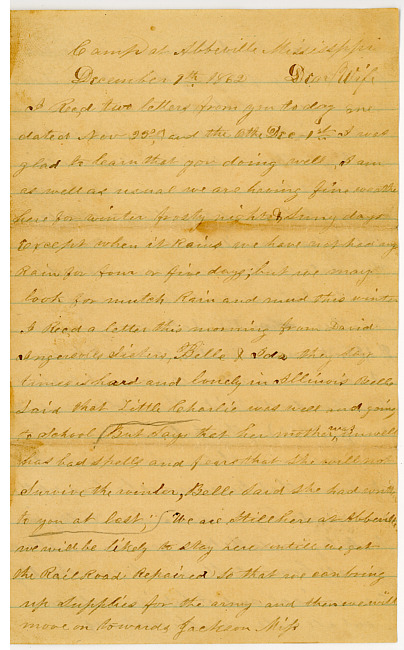 Camp at Abbeville Mississippi
December 9th 1862 Dear Wife
I Recd two letters from you to day one
dated Nov 22d and the other Dec 1st I was
glad to learn that you doing well, I am
as well as usual we are having fine weather
here for winter frosty nights & Suny days
Except when it Rains we have not had any
Rain for four or five days; but we may
look for mutch Rain and mud this winter
I Recd a letter this morning from David
Ingersoles Sisters, Belle & Ida they Say
times is hard and lonely in Illinois Belle
Said that Little Charlie was well and going
to School (But Says that her mother was unwell
has bad Spells and fears that She will not
Survive the winter, Belle Said She had writ
to you at last;) We are Still here at Abbeville
we will be likely to Stay here untill we get
the Rail Road Repaired So that we can bring
up Supplies for the army and then we will
move on towards Jackson Miss